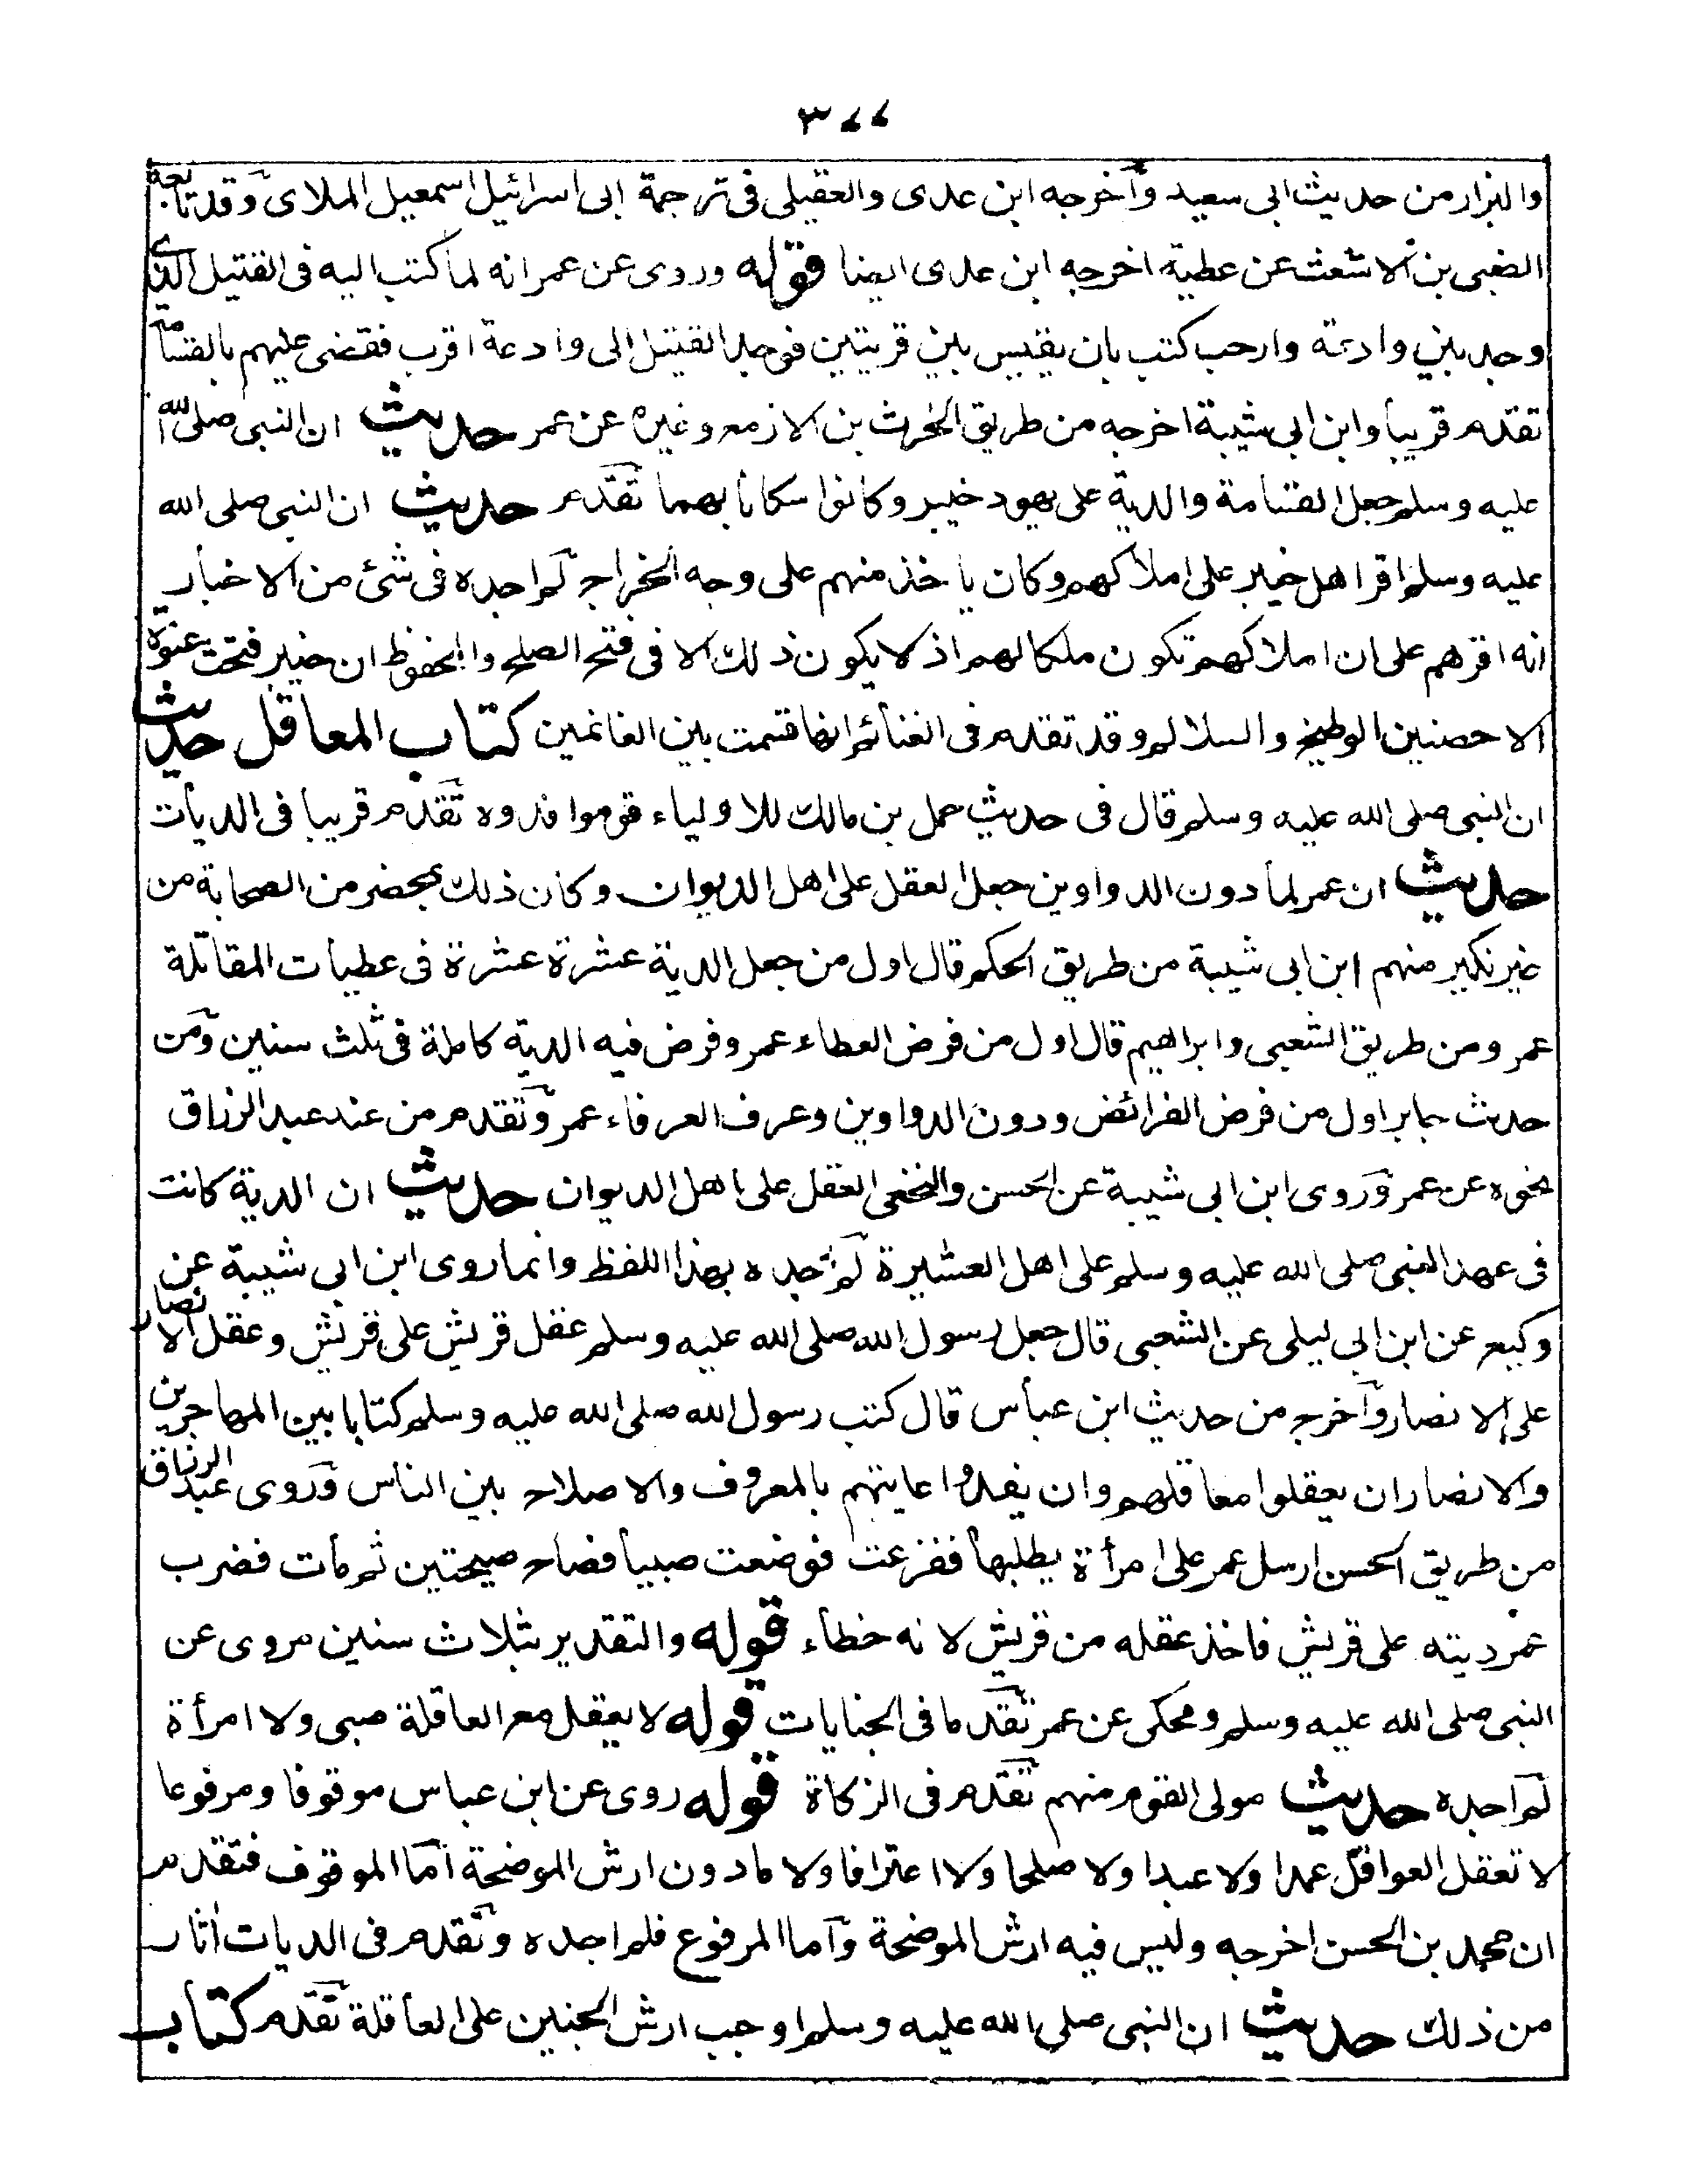 ٣٧٧
والبزار من حديث ابى سعيد وآخرجه ابن عدى والعقيلى فى ترجمة ابى اسرائيل اسمعيل الملاى وقد تابعه
الضبى بن الاشعث عن عطية اخرجه ابن عدى ايضا قوله وروى عن عمر انه لما كتب اليه فى القتيل الذى
وجد بين وادعة وارحب كتب بان يقيس بين قريتين فوجد القتيل الى وادعة اقرب فقضى عليهم بالقسامة
تقدم قريبا وابن ابى شيبة اخرجه من طريق الحرث بن الازمع وغيره عن عمر حديث ان النبى صلى الله
عليه وسلم جعل القسامة والدية على يهود خيبر وكانوا سكانا بهما تقدم حديث ان النبى صلى الله
عليه وسلم اقر اهل خيبر على املاكهم وكان يأخذ منهم على وجه الخراج لم اجده فى شئ من الاخبار
انه اقرهم على ان املاكهم تكون ملكا لهم اذ لا يكون ذلك الا فى فتح الصلح والمحفوظ ان خيبر فتحت عنوة
الا حصنين الوطيخ والسلالم وقد تقدم فى الغنائم انها قسمت بين الغانمين كتاب المعاقل حديث
ان النبى صلى الله عليه وسلم قال فى حديث حمل بن مالك للاولياء قوموا فدوه تقدم قريبا فى الديات
حديث ان عمر لما دون الدواوين جعل العقل على اهل الديوان وكان ذلك بمحضر من الصحابة من
غير نكير منهم ابن ابى شيبة من طريق الحكم قال اول من جعل الدية عشرة عشرة فى عطيات المقاتلة
عمر ومن طريق الشعبى وابراهيم قال اول من فرض العطاء عمر وفرض فيه الدية كاملة فى ثلث سنين ومن
حديث جابر اول من فرض الفرائض ودون الدواوين وعرف العرفاء عمر وتقدم من عند عبد الرزاق
نحوه عن عمر وروى ابن ابى شيبة عن الحسن والنخعى العقل على اهل الديوان حديث ان الدية كانت
فى عهد النبى صلى الله عليه وسلم على اهل العشيرة لم اجده بهذا اللفظ وانما روى ابن ابى شيبة عن
وكيع عن ابن ابى ليلى عن الشعبى قال جعل رسول الله صلى الله عليه وسلم عقل قريش على قريش وعقل الانصار
على الانصار وآخرج من حديث ابن عباس قال كتب رسول الله صلى الله عليه وسلم كتابا بين المهاجرين
والانصار ان يعقلوا معاقلهم وان يفدوا عانيهم بالمعروف والاصلاح بين الناس وروى عبد الرزاق
من طريق الحسن ارسل عمر على امرأة يطلبها ففزعت فوضعت صبيا فصاح صيحتين ثم مات فضرب
عمر ديته على قريش فاخذ عقله من قريش لانه خطاء قوله والتقدير بثلاث سنين مروى عن
النبى صلى الله عليه وسلم ومحكى عن عمر تقدما فى الجنايات قوله لا يعقل مع العاقلة صبى ولا امرأة
لم اجده حديث مولى القوم منهم تقدم فى الزكاة قوله روى عن ابن عباس موقوفا ومرفوعا
لا تعقل العواقل عمدا ولا عبدا ولا صلحا ولا اعترافا ولا ما دون ارش الموضحة اما الموقوف فتقدم
ان محمد بن الحسن اخرجه وليس فيه ارش الموضحة وآما المرفوع فلم اجده وتقدم فى الديات اثار
من ذلك حديث ان النبى صلى الله عليه وسلم اوجب ارش الجنين على العاقلة تقدم كتاب